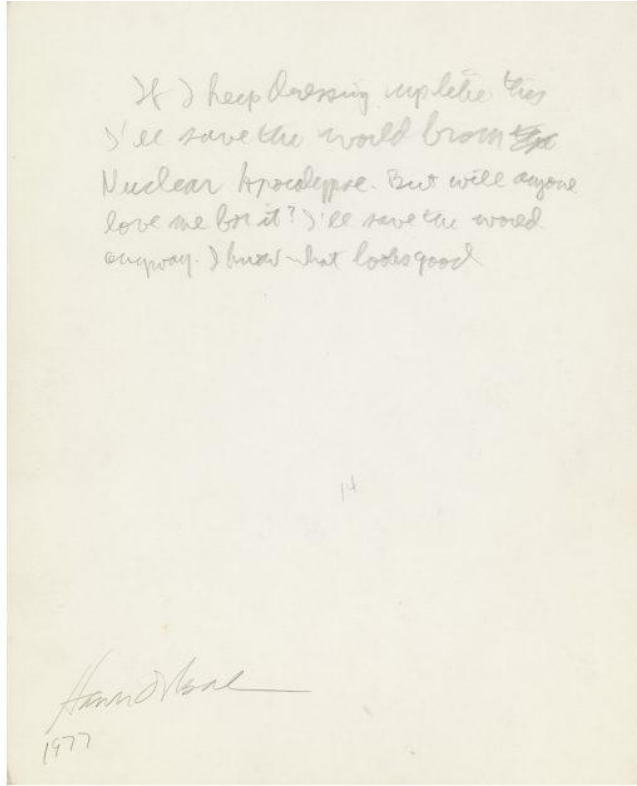 If I keep dressing up like this
I'll save the world from
Nuclear Apocalypse. But will anyone
love me for it? I'll save the world
anyway. I know what looks good
14
1977